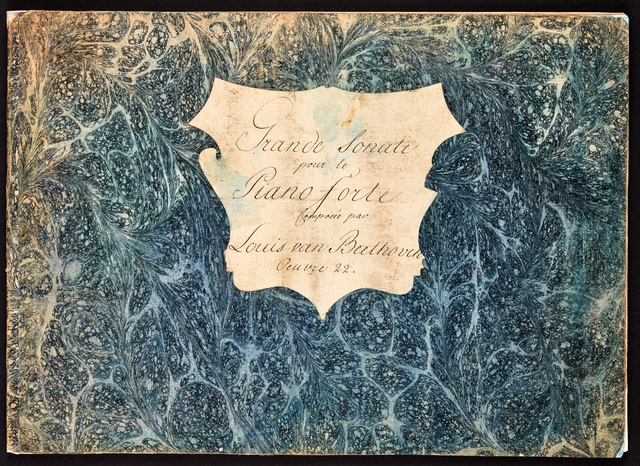 Grande Sonate
pour le
Piano forte
Composée par
Louis van Beethoven
Oeuvre 22.